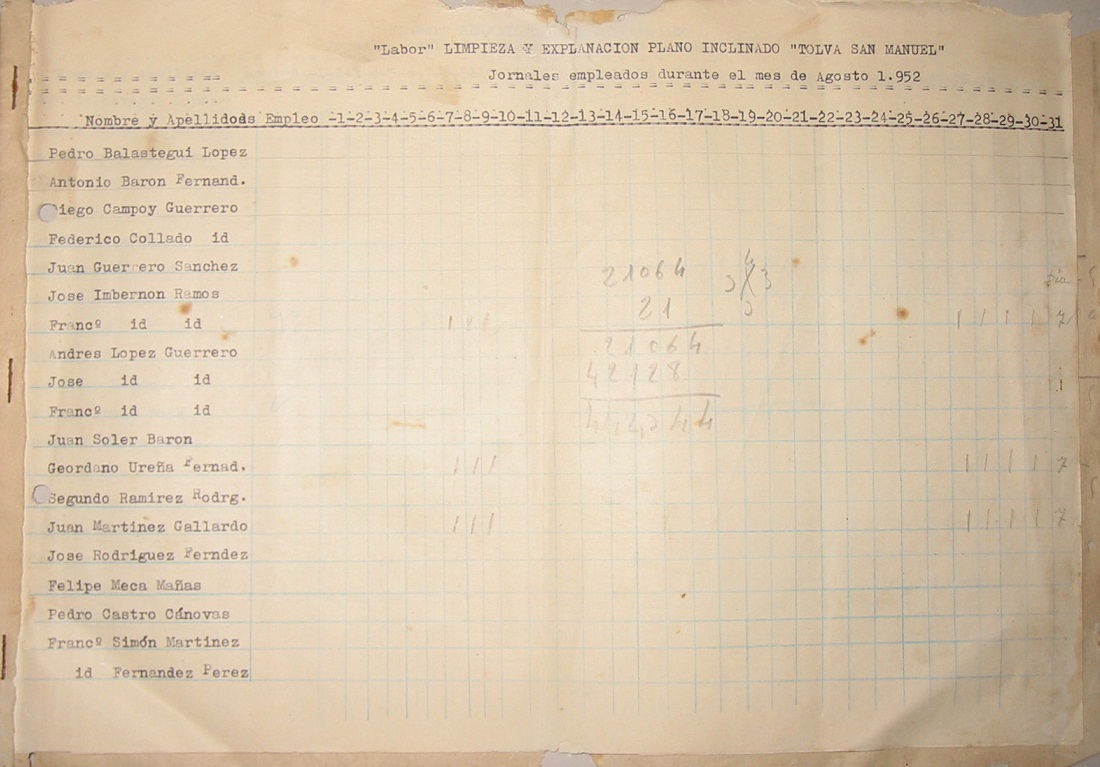 "Labor" LIMPIEZA Y EXPLANACION PLANO INCLINADO "TOLVA SAN MANUEL"
Jornales empleados durante el mes de Agosto 1.952
Nombre y Apellidods Empleo -1-2-3-4-5-6-7-8-9-10-11-12-13-14-15-16-17-18-19-20-21-22-23-24-25-26-27-28-29-30-31
Pedro Balastegui Lopez
Antonio Baron Fernand.
Diego Campoy Guerrero
Federico Collado id
Juan Guerrero Sanchez 21064
Jose Imbernon Ramos 21
Francº id id 1 1 1 1 1 1 1 7
Andres Lopez Guerrero 21064
Jose id id 42128
Francº id id
Juan Soler Baron
Geordano Ureña Fernad. 1 1 1 1 1 1 1 7
Segundo Ramirez Rodrg.
Juan Martinez Gallardo 1 1 1 1 1 1 1 7
Jose Rodriguez Ferndez
Felipe Meca Mañas
Pedro Castro Cánovas
Francº Simón Martinez
id Fernandez Perez